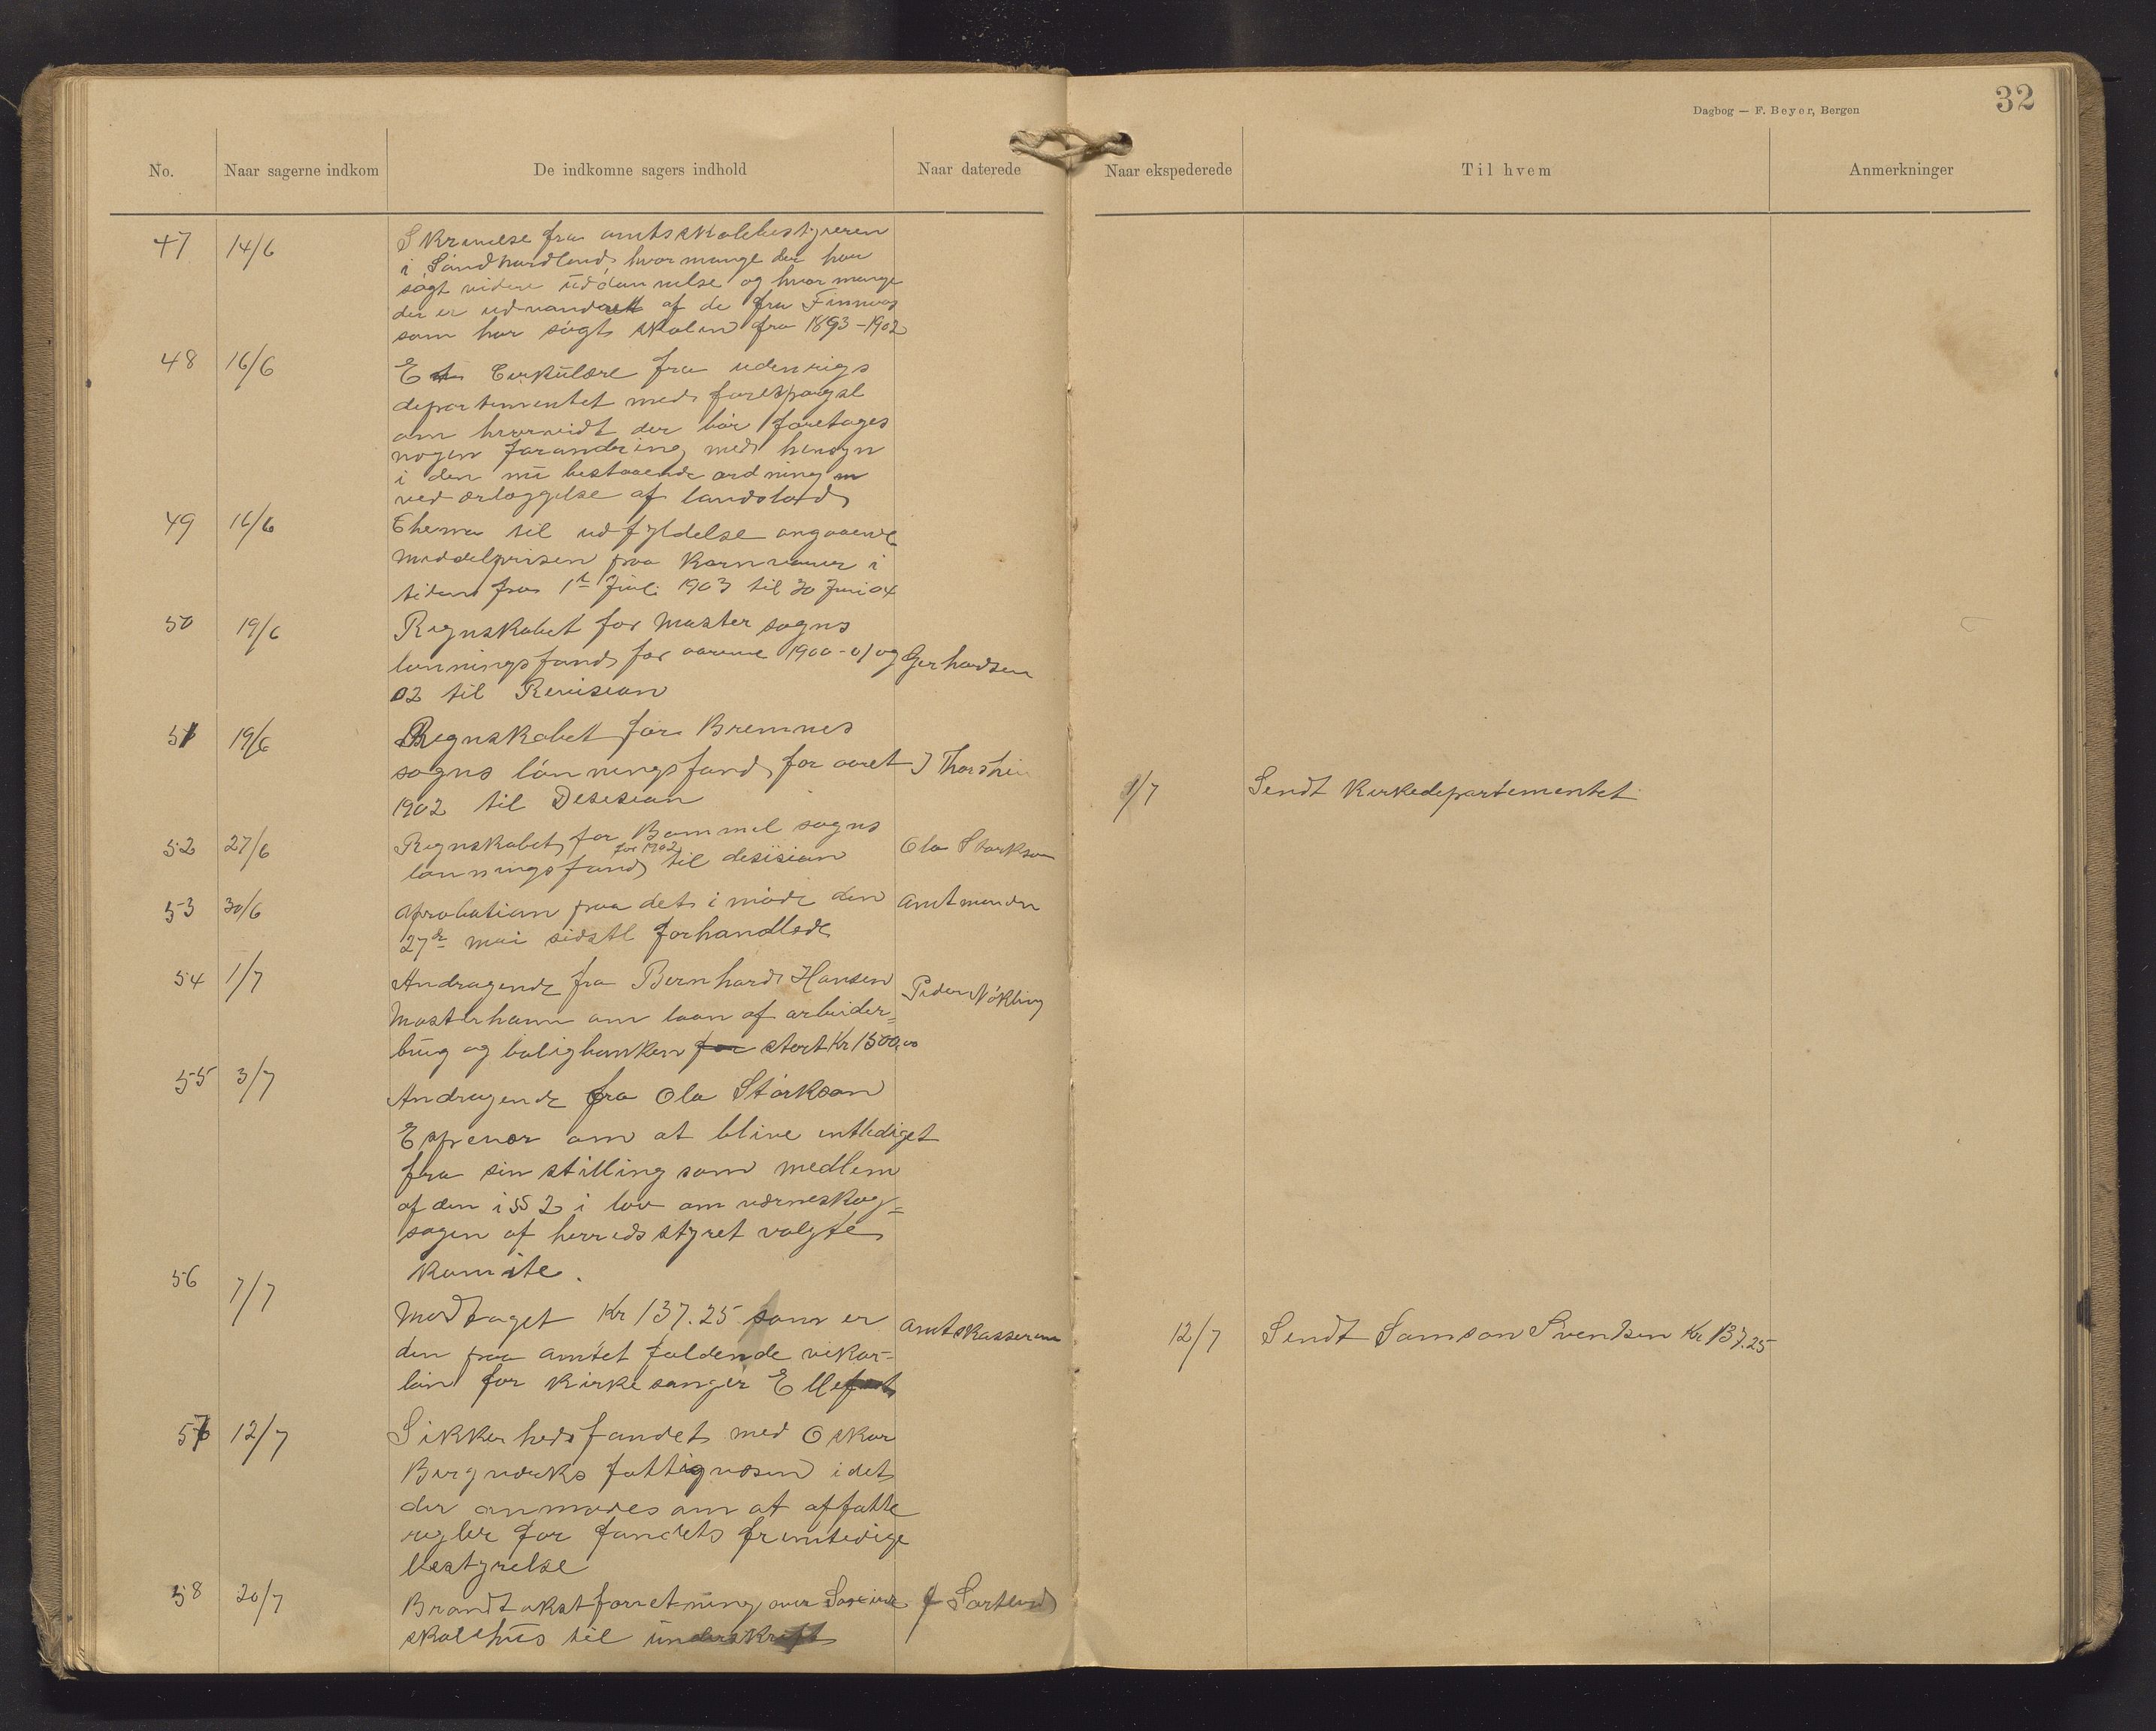 Dagbog — F. Beyer, Bergen
32
No.
Naar sagerne indkom
De indkomne sagers indhold
Naar daterede
Naar ekspederede
Til hvem
Anmerkninger
47 14/6 Skrivelse fra amtsskolebestyreren
i Søndhordland, hvor mange der har
søgt videre uddannelse og hvor mange
der er udvandret af de fra Finnaas
som har søgt skolen fra 1893-1902
48 16/6 Et Cirkulære fra udenrigs
departementet med forespørgsl
om hvorvidt der bør foretages
nogen forandring med hensyn
i den nu bestaaende ordning m
ved ærlæggelse af landslod
49 16/6 Chema til udfyldelse angaaende
middelprisen paa Kornvarer i
tiden fra 1te Juli 1903 til 30 Juni 04
50 19/6 Regnskabet for Moster sogns
lønningsfond for aarene 1900-01 og Gerhardsen
02 til Revision
51 19/6 Regnskabet for Bremnes
sogns lønningsfond for aaret J Thorshei
1902 til Desision
1/7 Sendt Kirkedepartementet
52 27/6 Regnskabet for Bømmel sogns Ola Størkson
for 1902
lønningsfond til desision
53 30/6 Aprobation paa det i møde den Amtmanden
27de mai sidstl forhandlede
54 1/7 Andragende fra Bernhard Hansen Peder Nøkling
Mosterhamn om laan af arbeider=
brug og boligbanken for stort Kr 1500,00
55 3/7 Andragende fra Ola Størkson
Espevær om at blive entlediget
fra sin stilling som medlem
af den i § 2 i lov om værneskog=
sagen af herredsstyret valgte
komite.
56 7/7 Modtaget Kr 137.25 som er Amtskasseren
den paa amtet faldende vikar-
løn for Kirkesanger Ellef
12/7 Sendt Samson Svendsen Kr 137.25
57 12/7 Sikkerhedsfondet med Oskar
Bergværks fattigvæsen idet
der anmodes om at affatte
regler for fondets fremtidige
bestyrelse
58 20/7 Brandtakstforretning over J Sortland
skolehus til underskrift